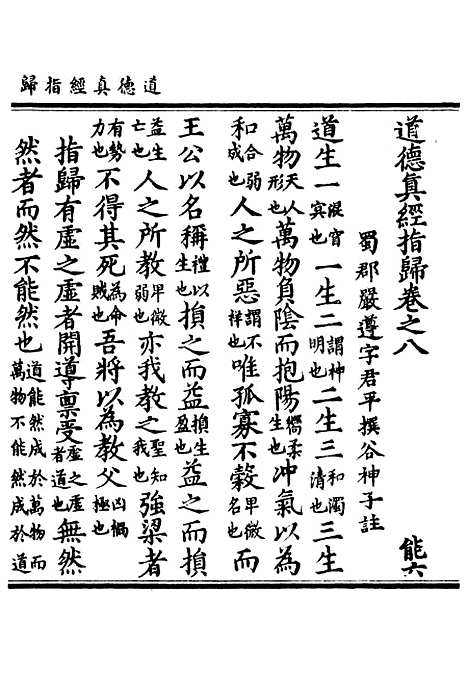 道德真經指歸
道德真經指歸卷之八 能六
蜀郡嚴遵字君平撰谷神子註
道生一混也一生二謂神明也二生三和濁清也三生
萬物天人形也萬物負陰而抱陽嚮柔生也冲氣以為
和合弱成也人之所惡謂不祥也唯孤寡不穀卑微名也而
王公以名稱禮以生也損之而益損生盈也益之而損
益生亡也人之所教卑微弱也亦我教之聖知我也強梁者
有勢力也不得其死為命賊也吾將以為教父凶禍極也
指歸有虛之虛者開導禀受虛之虛者道也無然
然者而然不能然也道能然成於萬物而萬物不能然成於道